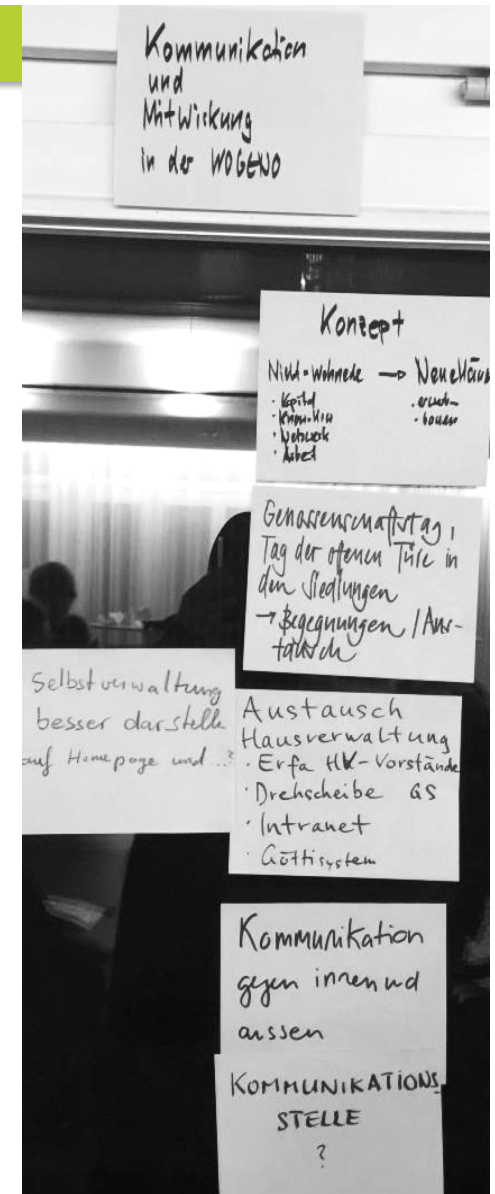 Kommunikation
und
Mitwirkung
in der WOGENO
Konzept
Nicht-Wohnede → Neue Häus
· Kapital
· Know-How
· Netzwerk
· Arbeit
· bauen
Genossenschaftstag,
Tag der offenen Türe in
den Siedlungen
→ Begegnungen / Aus-
tausch
Selbstverwaltung
besser darstelle
auf Homepage und...?
Austausch
Hausverwaltung
· Erfa HV-Vorstände
· Drehscheibe GS
· Intranet
· Göttisystem
Kommunikation
gegen innen und
aussen
KOMMUNIKATIONS-
STELLE
?